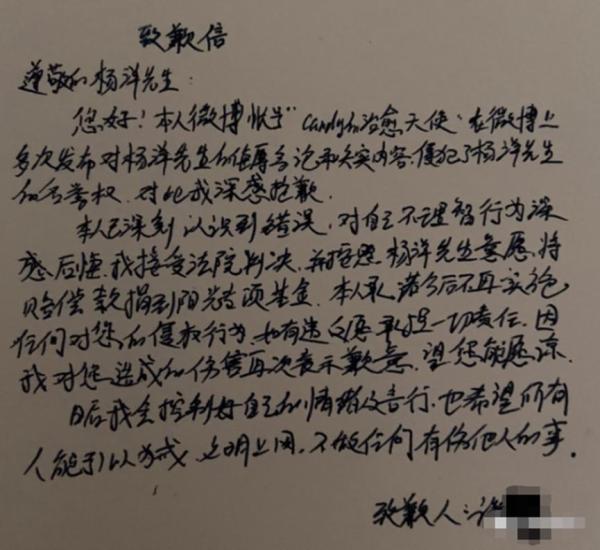 致歉信
尊敬的杨洋先生:
您好!本人微博帐号"candy的治愈天使"在微博上
多次发布对杨洋先生的侮辱言论和失实内容,侵犯了杨洋先生
的名誉权,对此我深感抱歉.
本人已深刻认识到错误,对自己不理智行为深
感后悔.我接受法院判决,并按照杨洋先生意愿,将
赔偿款捐到阳光专项基金.本人承诺今后不再实施
任何对您的侵权行为,如有违反愿承担一切责任.因
我对您造成的伤害再次表示歉意,望您能愿谅.
日后我会控制好自己的情绪及言行,也希望所有
人能引以为戒,文明上网,不做任何有伤他人的事.
致歉人:许